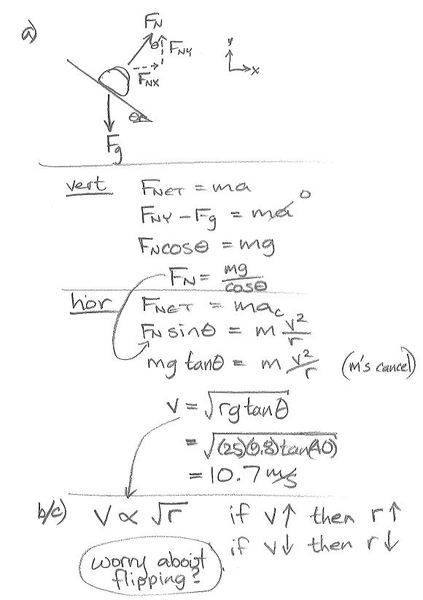 a)
F_N
θ
F_NY
F_NX
y
x
θ
F_g
vert F_NET = ma
F_NY - F_g = ma 0
F_N cosθ = mg
F_N = mg/cosθ
hior F_NET = ma_c
F_N sinθ = m v²/r
mg tanθ = m v²/r (m's cancel)
v = √rg tanθ
= √(25)(9.8)tan(40)
= 10.7 m/s
b/c) v ∝ √r if v↑ then r↑
if v↓ then r↓
worry about
flipping?